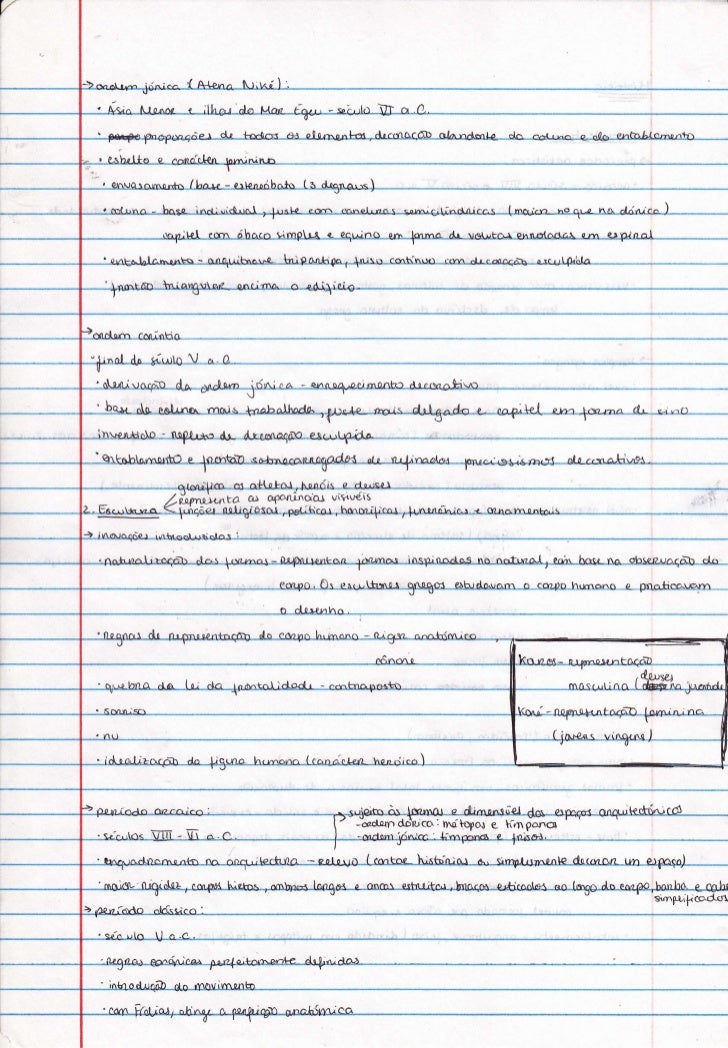 → ordem jónica (Atena Niké):
· Ásia Menor e ilhas do Mar Egeu - século VI a.C.
· proporções de todos os elementos, decoração abundante da coluna e do entablamento
· esbelto e carácter feminino
· envasamento/base - estereóbato (3 degraus)
· coluna - base individual, fuste com caneluras semicilíndricas (maior nº que na dórica)
capitel com ábaco simples e equino em forma de volutas enroladas em espiral
· entablamento - arquitrave tripartipa, friso contínuo com decoração esculpida
· frontão triangular encima o edifício.
→ ordem coríntia
· final do século V a.C.
· derivação da ordem jónica - enriquecimento decorativo
· base da coluna mais trabalhada, fuste mais delgado e capitel em forma de sino
invertido - repleto de decoração esculpida
· entablamento e frontão sobrecarregados de refinados preciosismos decorativos.
glorifica os atletas, heróis e deuses
representa as aparências visivéis
2. Escultura funções religiosas, políticas, honoríficas, funerárias e ornamentais
→ inovações introduzidas:
· naturalização das formas - representar formas inspiradas no natural, com base na observação do
corpo. Os escultores gregos estudavam o corpo humano e praticavam
o desenho.
· regras de representação do corpo humano - rigor anatómico
cânone
· quebra da lei da frontalidade - contraposto
· sorriso
· nu
· idealização da figura humana (carácter heróico)
Koros - representação
masculina (deuses na juventude
Koré - representação feminina
(jovens virgens)
→ período arcaico:
· séculos VIII - VI a.C.
→ sujeito às formas e dimensões dos espaços arquitectónicos
- ordem dórica: métopas e tímpanos
- ordem jónica: tímpanos e frisos.
· enquadramento na arquitectura - relevo (contar histórias ou simplesmente decorar um espaço)
· maior rigidez, corpos hirtos, ombros largos e ancas estreitas, braços esticados ao longo do corpo, barba e cabe
simplificados
→ período clássico:
· século V a.C.
· regras canónicas perfeitamente definidas
· introdução do movimento
· com Frídias, atinge a perfeição anatómica